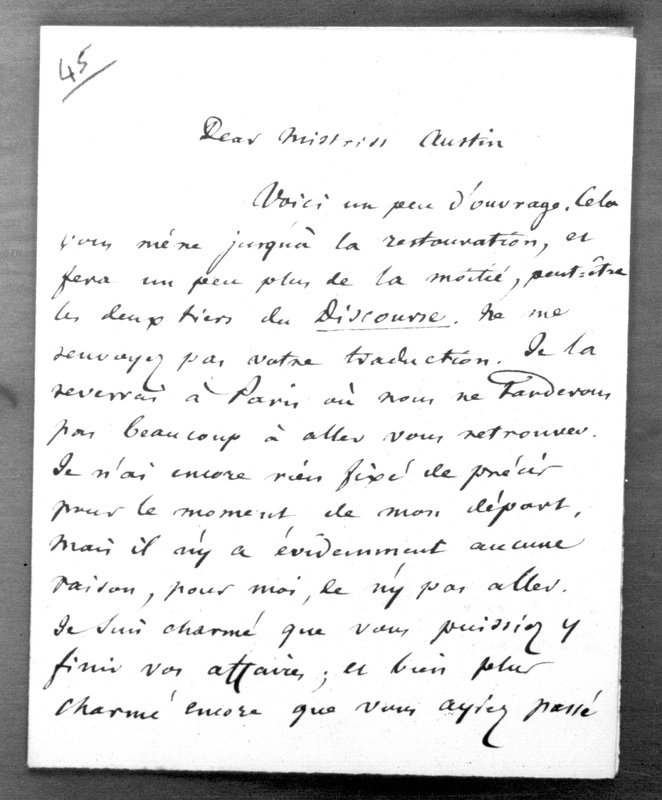 45
Dear Mistriss Austin
Voici un peu d'ouvrage. Cela
vous mène jusqu'à la restauration, et
fera un peu plus de la moitié, peut-être
les deux tiers du Discourse. Ne me
renvoyez pas votre traduction. Je la
reverrai à Paris où nous ne Tarderons
pas beaucoup à aller vous retrouver.
Je n'ai encore rien fixé de précis
pour le moment de mon départ,
mais il n'y a évidemment aucune
raison, pour moi, de n'y pas aller.
Je suis charmé que vous puissiez y
finir vos affaires; et bien plus
charmé encore que vous ayiez passé